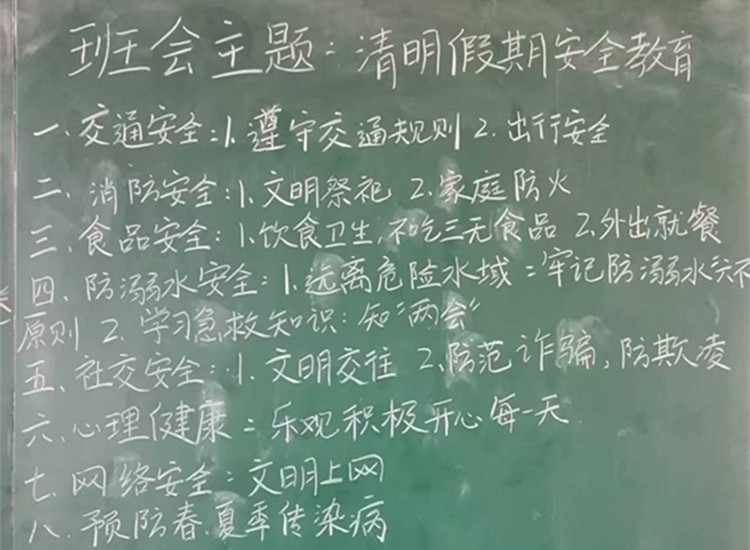 班会主题:清明假期安全教育
一、交通安全:1.遵守交通规则 2.出行安全
二、消防安全:1.文明祭祀 2.家庭防火
三、食品安全:1.饮食卫生,不吃三无食品 2.外出就餐
四、防溺水安全:1.远离危险水域:牢记防溺水六不
原则 2.学习急救知识:知"两会"
五、社交安全:1.文明交往 2.防范诈骗,防欺凌
六、心理健康:乐观积极开心每一天
七、网络安全:文明上网
八、预防春、夏季传染病